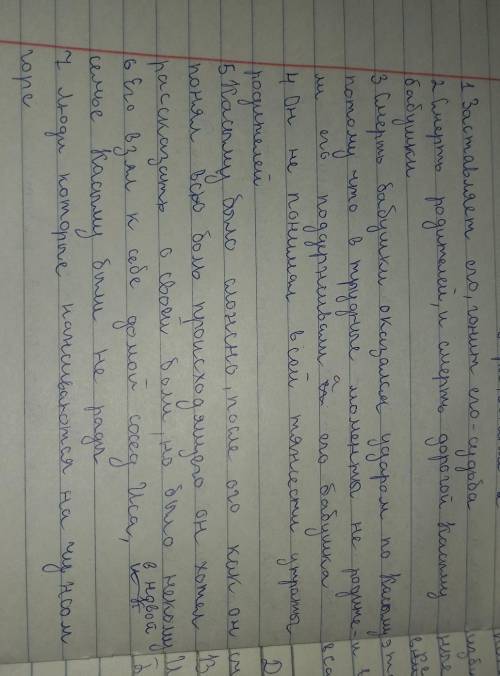 1 Заставляет его, гонит его - судьба
2 Смерть родителей, и смерть дорогой Касыму
бабушки
3 Смерть бабушки оказалась ударом по Касыму
потому что в трудные моменты не родите-
ли его поддерживали а его бабушка
4 Он не понимал всей тяжести утраты
родителей
5 Касыму было сложно, после ого как он
понял всю боль происходящего он хотел
рассказать о своей боли, но было некому
6 Его взял к себе домой сосед Иса, в новой
семье Касыму были не рады
7 Люди которые наживаются на чужом
горе